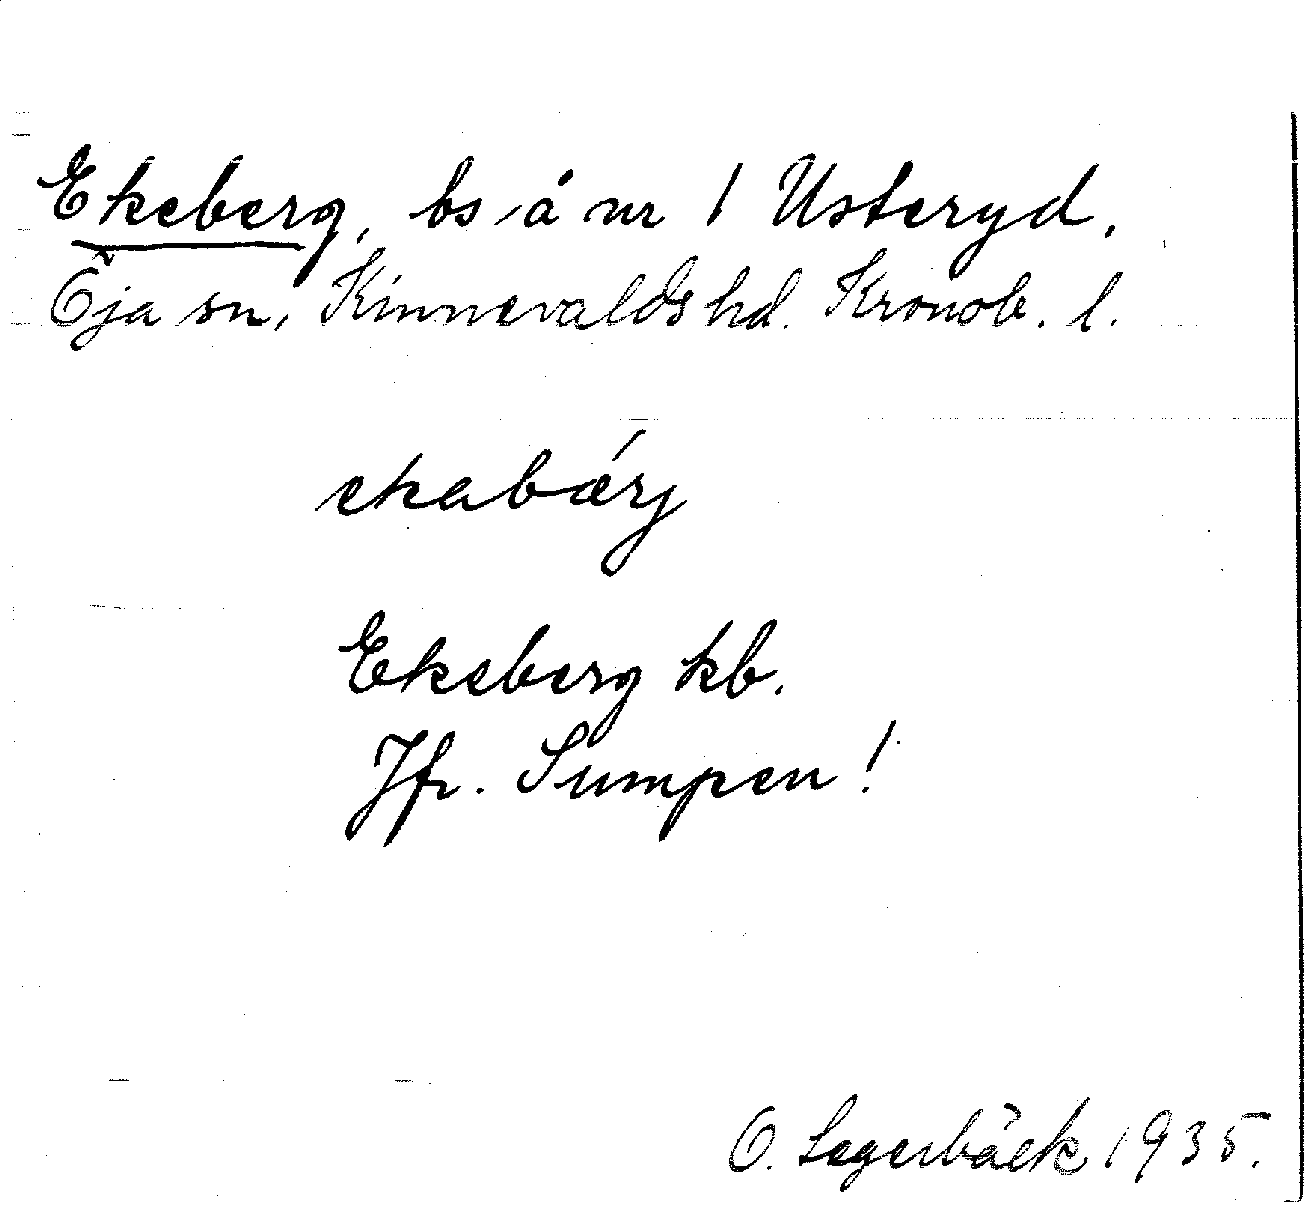 Ekeberg, bs å nr 1 Usteryd.
Öja sn, Kinnevalds hd. Kronob. l.
ekabærj
Ekeberg kb.
Jfr. Sumpen!
O. Lagerbäck 1935.